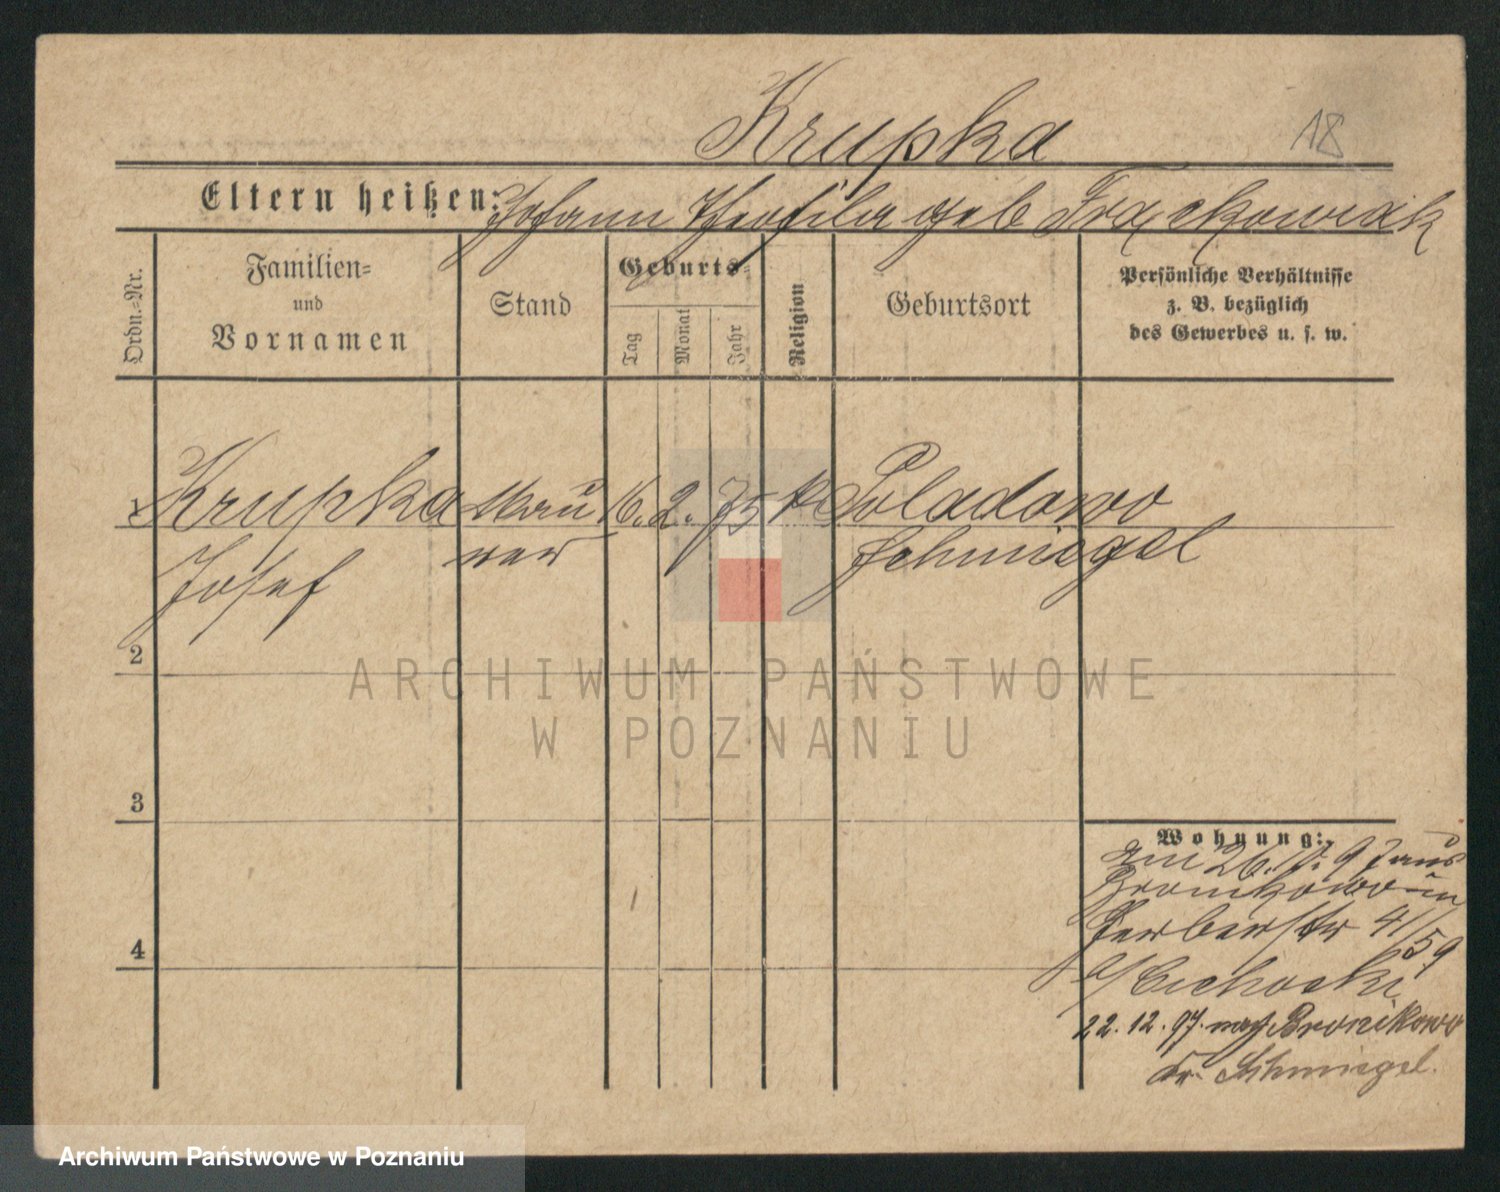 Krupka
18
Eltern heißen: Johann Theofila geb Frąckowiak
Ordn.-Nr.
Familien-
und
Vornamen
Stand
Geburts-
Tag
Monat
Jahr
Religion
Geburtsort
Persönliche Verhältnisse
z. B. bezüglich
des Gewerbes u. s. w.
1 Krupka Mau 16. 2. 75 k Poladowo
Josef rer Schmiegel
2
3
4
Wohnung:
am 26. 97 aus
Bronikowo in
Gerberstr 4/59
b/ Cichocki
22.12.97. nach Bronikowo
Kr. Schmiegel.
ARCHIWUM PAŃSTWOWE
W POZNANIU
Archiwum Państwowe w Poznaniu